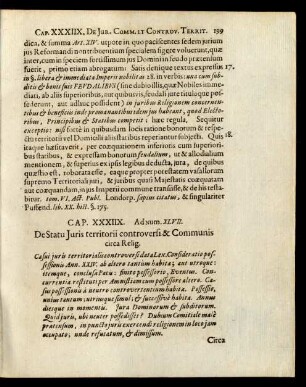 CAP. XXXIIX. DE JUR. COMM. ET CONTROV. TERRIT. 199
dica, & summa Art. XIV. utpote in quo paciscentes se dem jurium
jus Reformandi non tribuentium specialem figere voluerunt, quæ
inter, cum in speciem fortissimum jus Domini in feudo prætendi
fuerit, primo etiam abrogarunt. Satis denique textus expressus 17.
in §. libera & immediata Imperii nobilitas 28. in verbis: una cum subdi-
tis & bonis suis FEUDALIBUS (sine dubio illis, quæ Nobiles immediati,
an ab aliis superioribus, aut quibusvis, feudali jure titulóque possederunt,
aut adhuc possident) in juribus Religionem concernentibus
& beneficiis inde promanantibus idem jus habeant, quod Electoribus,
Principibus & Statibus competit: hæc regula. Sequitur
exceptio: nisi fortè in quibusdam locis ratione bonorum & respectu
territorii vel Domicilii aliis statibus reperiantur subjecti. Quis 18.
itaque hæsitaverit, per coæquationem inferioris cum superioribus
statibus, & expressam bonorum feudalium, ut & allodialium
mentionem, & superius ex ipsis legibus deducta, jura, de quibus
quæstio est, roborata esse, quæ propter potestatem vasallorum
supremo Territoriali juri, & juribus quasi Majestatis coæquatam
aut coæquandam, in jus Imperii commune transisse, & de his testabitur.
tom. VI. Act. Publ. Londorp. sæpius citatus, & singulariter
Puffend. lib. XX. hist. §. 175.
CAP. XXXIIX. Ad num. XLVII.
De Statu Juris territorii controversi & Communis
circa Relig.
Casus juris territorialis controversi data Lex. Consideratio possessionis
Ann. XXIV. ab altero tantùm habita; aut utroque:
itemque, conclusa Pacta: finito possessorio, Eventus. Concurrentia
restituti per Amnistiam cum possessore altero. Casus
possessionis à neutro controvertentium habitæ. Possessio,
unius tantum utrimque simul; & successivè habita. Annus
diesque in momentis. Jura Dominorum & subditorum.
Quid juris, ubi neuter possedisset? Dubium Comitiale majoris
pactum, in puncto juris exercendi religionem in loco jam
occupato, unde refutatum, & dimissum.
Circa